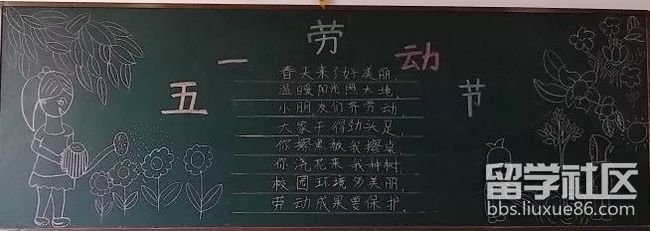 五一劳动节
春天来了好美丽，
温暖阳光照大地，
小朋友们齐劳动，
大家干得劲头足，
你擦黑板我擦桌
你浇花来我种树
校园环境多美丽
劳动成果要保护。
留学社区
bbs.liuxue86.com